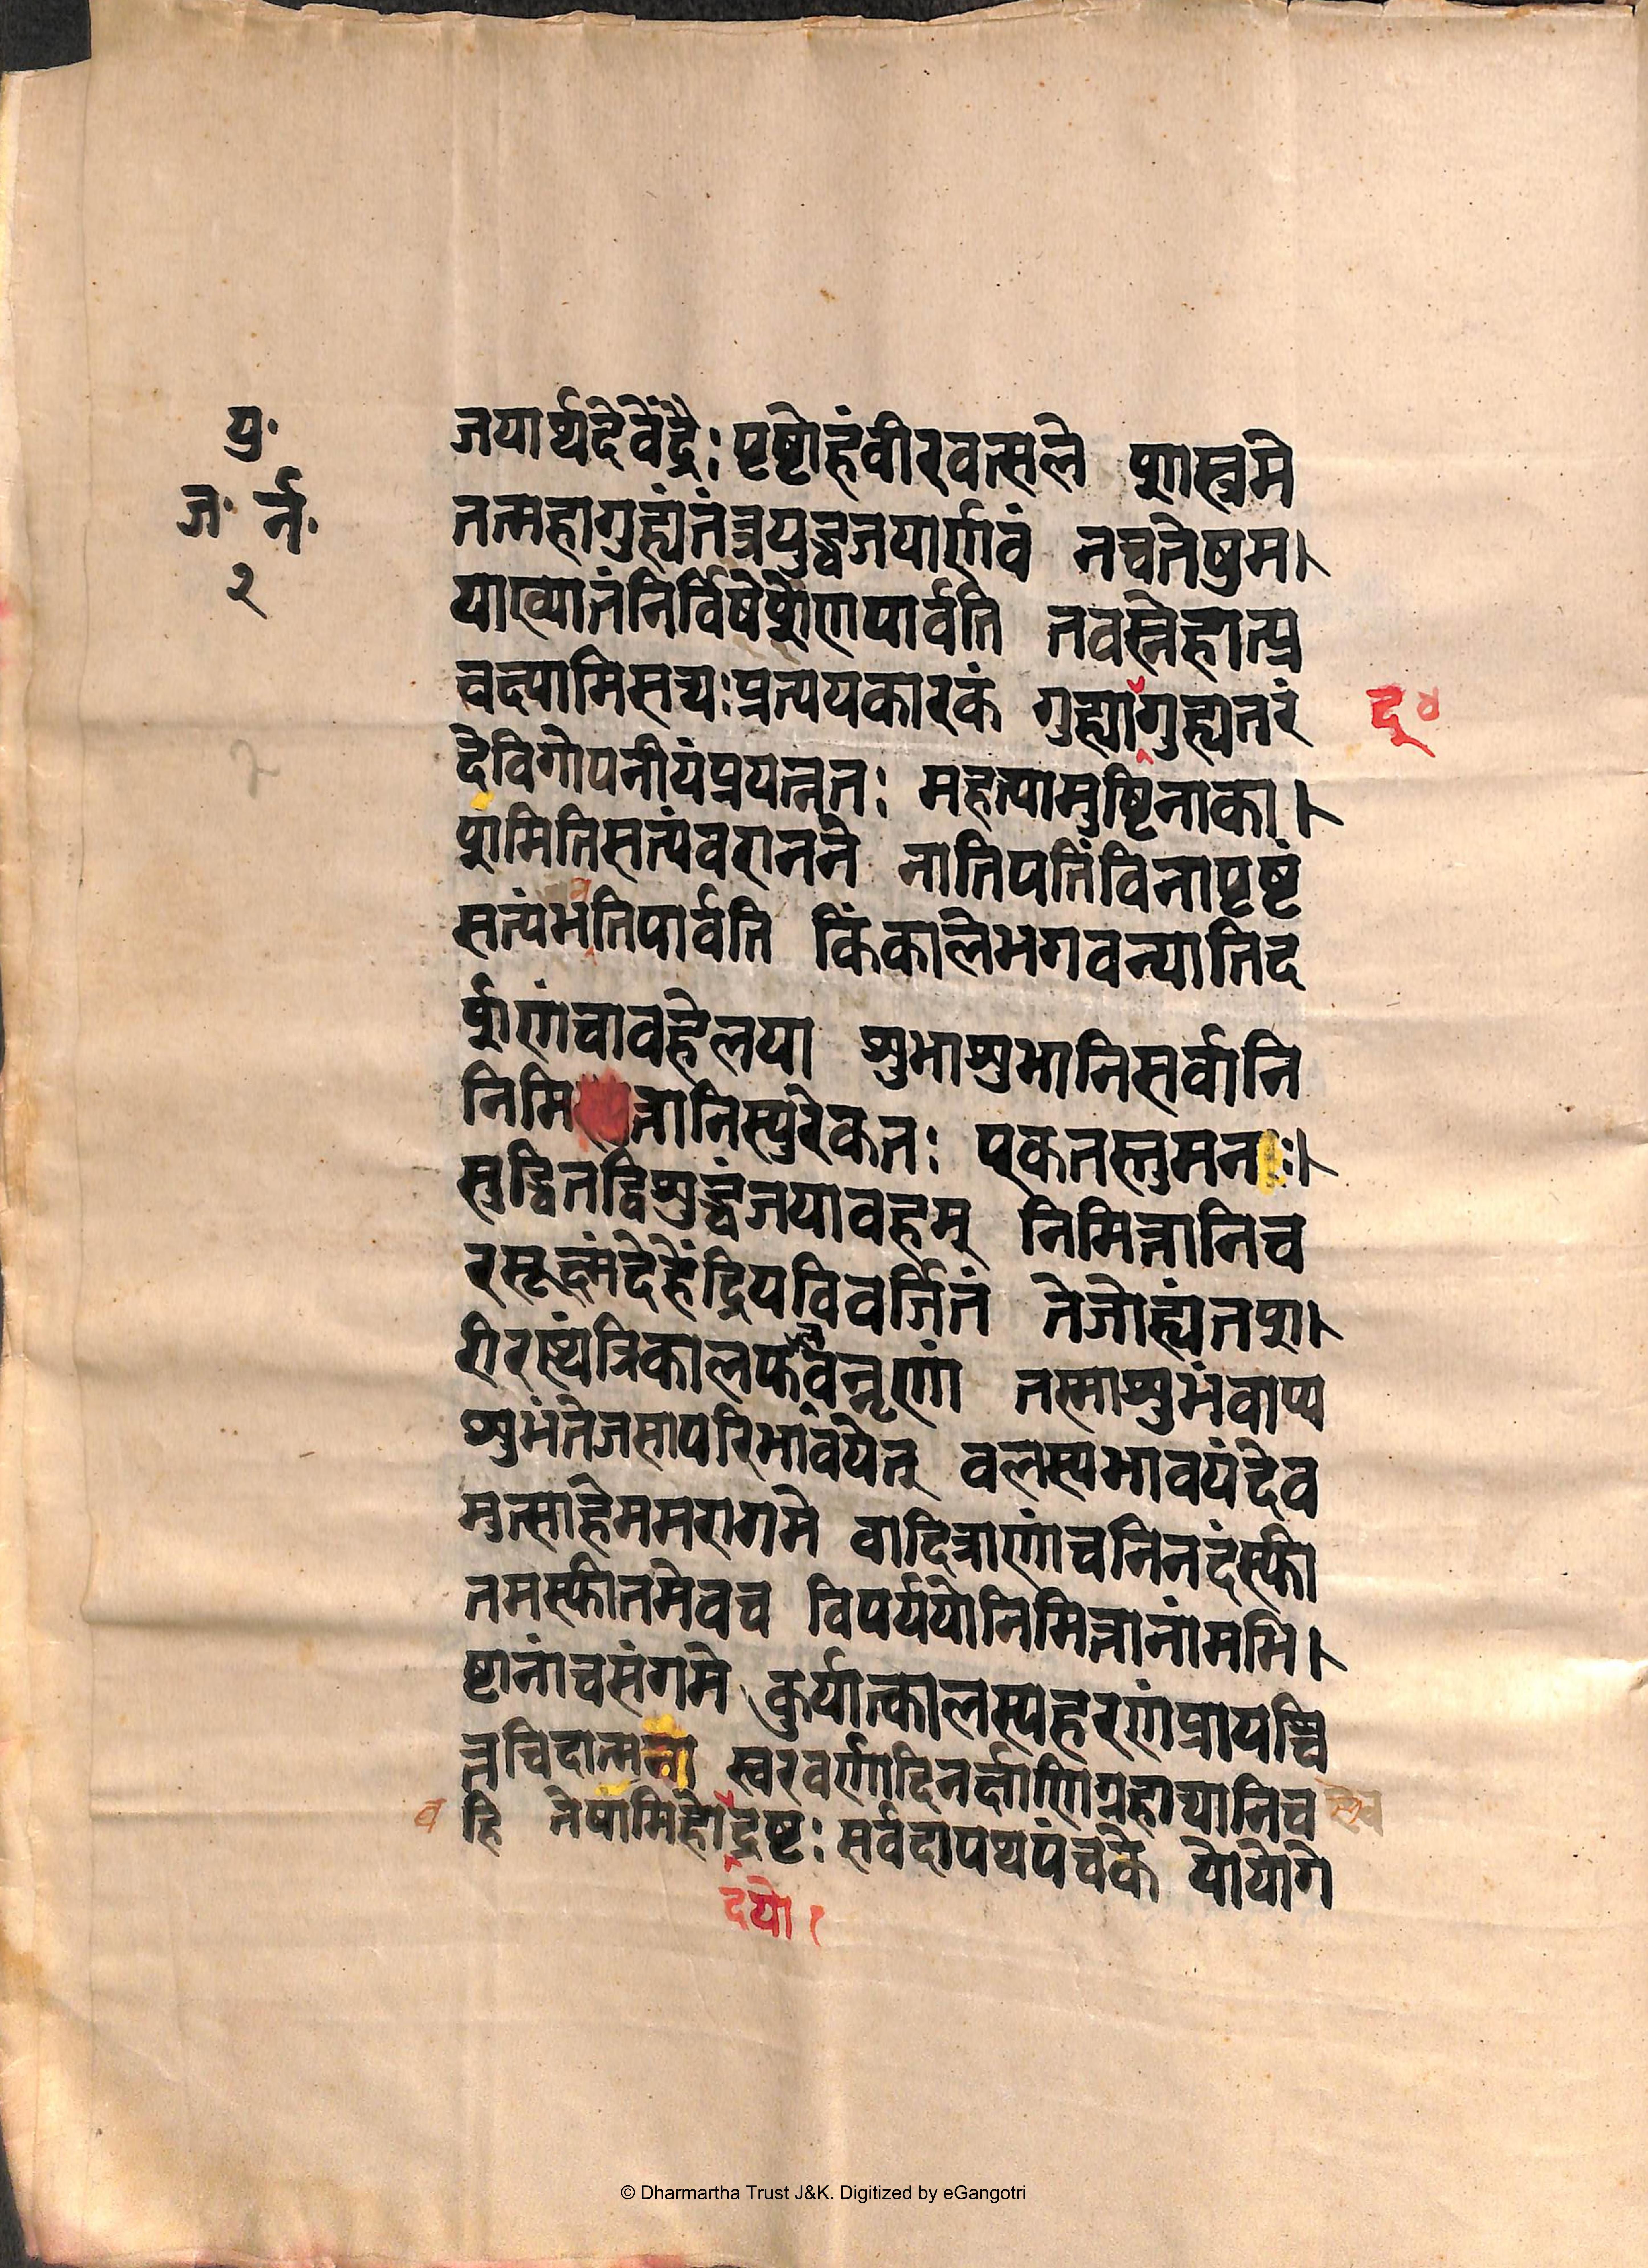 यु॰
ज॰ र्न॰
२
जयार्थदेवेंद्रैः पृष्टोहंवीरवत्सले शास्त्रमे
तन्महागुह्यंतंत्रयुद्धजयार्णवं नचतेषुम।
याख्यातंनिर्विषेशेणपार्वति तवस्नेहात्प्र
वक्ष्यामिसद्यःप्रत्ययकारकं गुह्यागुह्यतरं
द्व ४
देविगोपनीयंप्रयत्नतः महत्यामुष्टिनाका।
शमितिसत्यंवरानने नातिपतिंविनापृष्टं
सत्यंभतिपार्वति किंकालेभगवन्यातिद
व
र्शणंचावहेलया शुभाशुभानिसर्वानि
निमित्तानिस्युरेकतः एकतस्तुमनः।
सुद्धितद्विशुद्धंजयावहम् निमित्तानिच
रसूक्ष्मंदेहेंद्रियविवर्जितं तेजोह्यंतश।
रीरस्थंत्रिकालफवन्नृणां तस्माशुभंवाप्य
शुभंतेजसापरिभावयेत् वलस्यभावयंदेव
मुत्साहेममरागमे वादित्राणांचनिनदंस्फी
तमस्फीतमेवच विपर्ययोनिमित्तानांमभि।
ष्टानांचसंगमे कुर्यात्कालस्यहरणंप्रायश्चि
त्तचिदात्मना स्वरवर्णादिनर्क्षाणिग्रहाद्यानिच
व हि तेषामिहोद्रष्टः सर्वदापथपंचके योयोगे
दयो १
© Dharmartha Trust J&K. Digitized by eGangotri